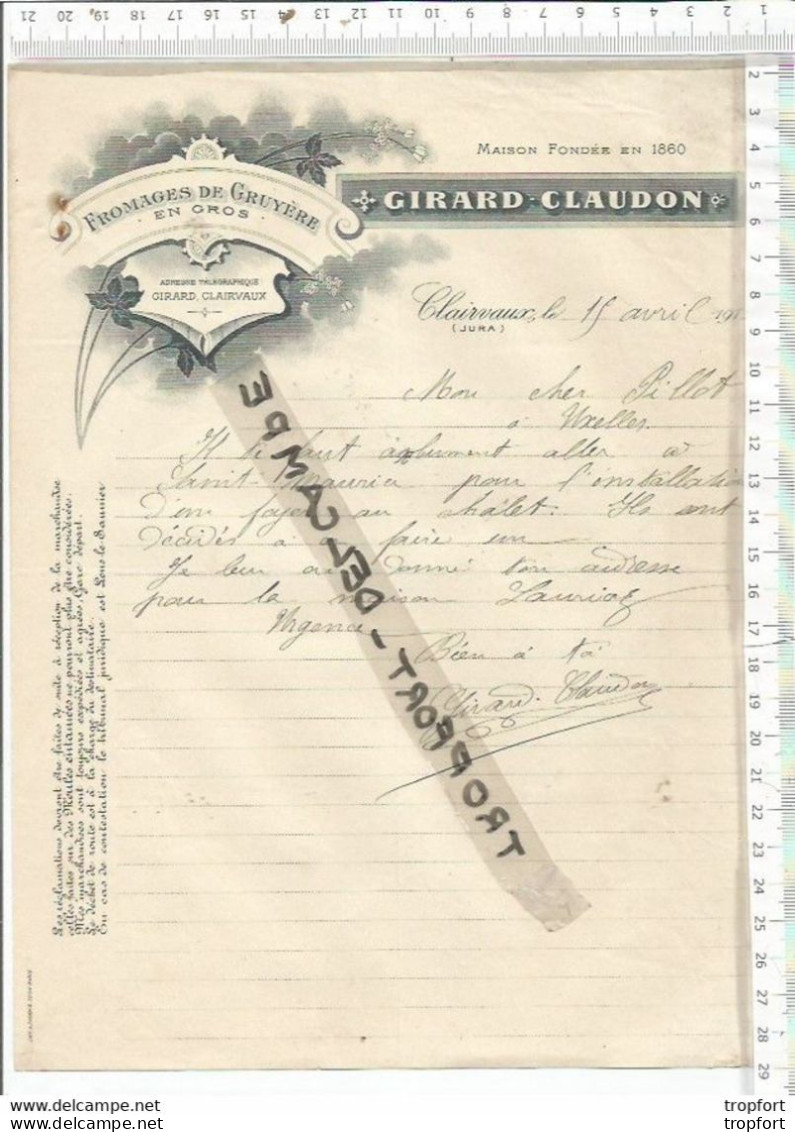 MAISON FONDÉE EN 1860
FROMAGES DE GRUYÈRE
EN GROS
GIRARD-CLAUDON
ADRESSE TÉLÉGRAPHIQUE
GIRARD, CLAIRVAUX
Clairvaux, le 15 avril 191
(JURA)
Mon cher Pillot
à Uxelles.
Il te faut absolument aller à
Saint-Maurice pour l'installation
d'un foyer au châlet. Ils ont
décidés à faire un
Je leur ai donné ton adresse
pour la maison Lauriot
Urgence
Bien à toi
Girard-Claudon
Les réclamations devront être faites de suite à réception de la marchandise
celles faites sur des Meules entamées ne pourront plus être considérées.
Mes marchandises sont toujours expédiées et agréées, Gare départ.
Le déchet de route est à la charge du destinataire.
En cas de contestation le tribunal juridique est Lons-le-Saunier
TROPFORT - DELCAMPE
21 20 19 18 17 16 15 14 13 12 11 10 9 8 7 6 5 4 3 2 1
2
3
4
5
6
7
8
9
10
11
12
13
14
15
16
17
18
19
20
21
22
23
24
25
26
27
28
29
Copyright © www.delcampe.net tropfort
Copyright © www.delcampe.net tropfort